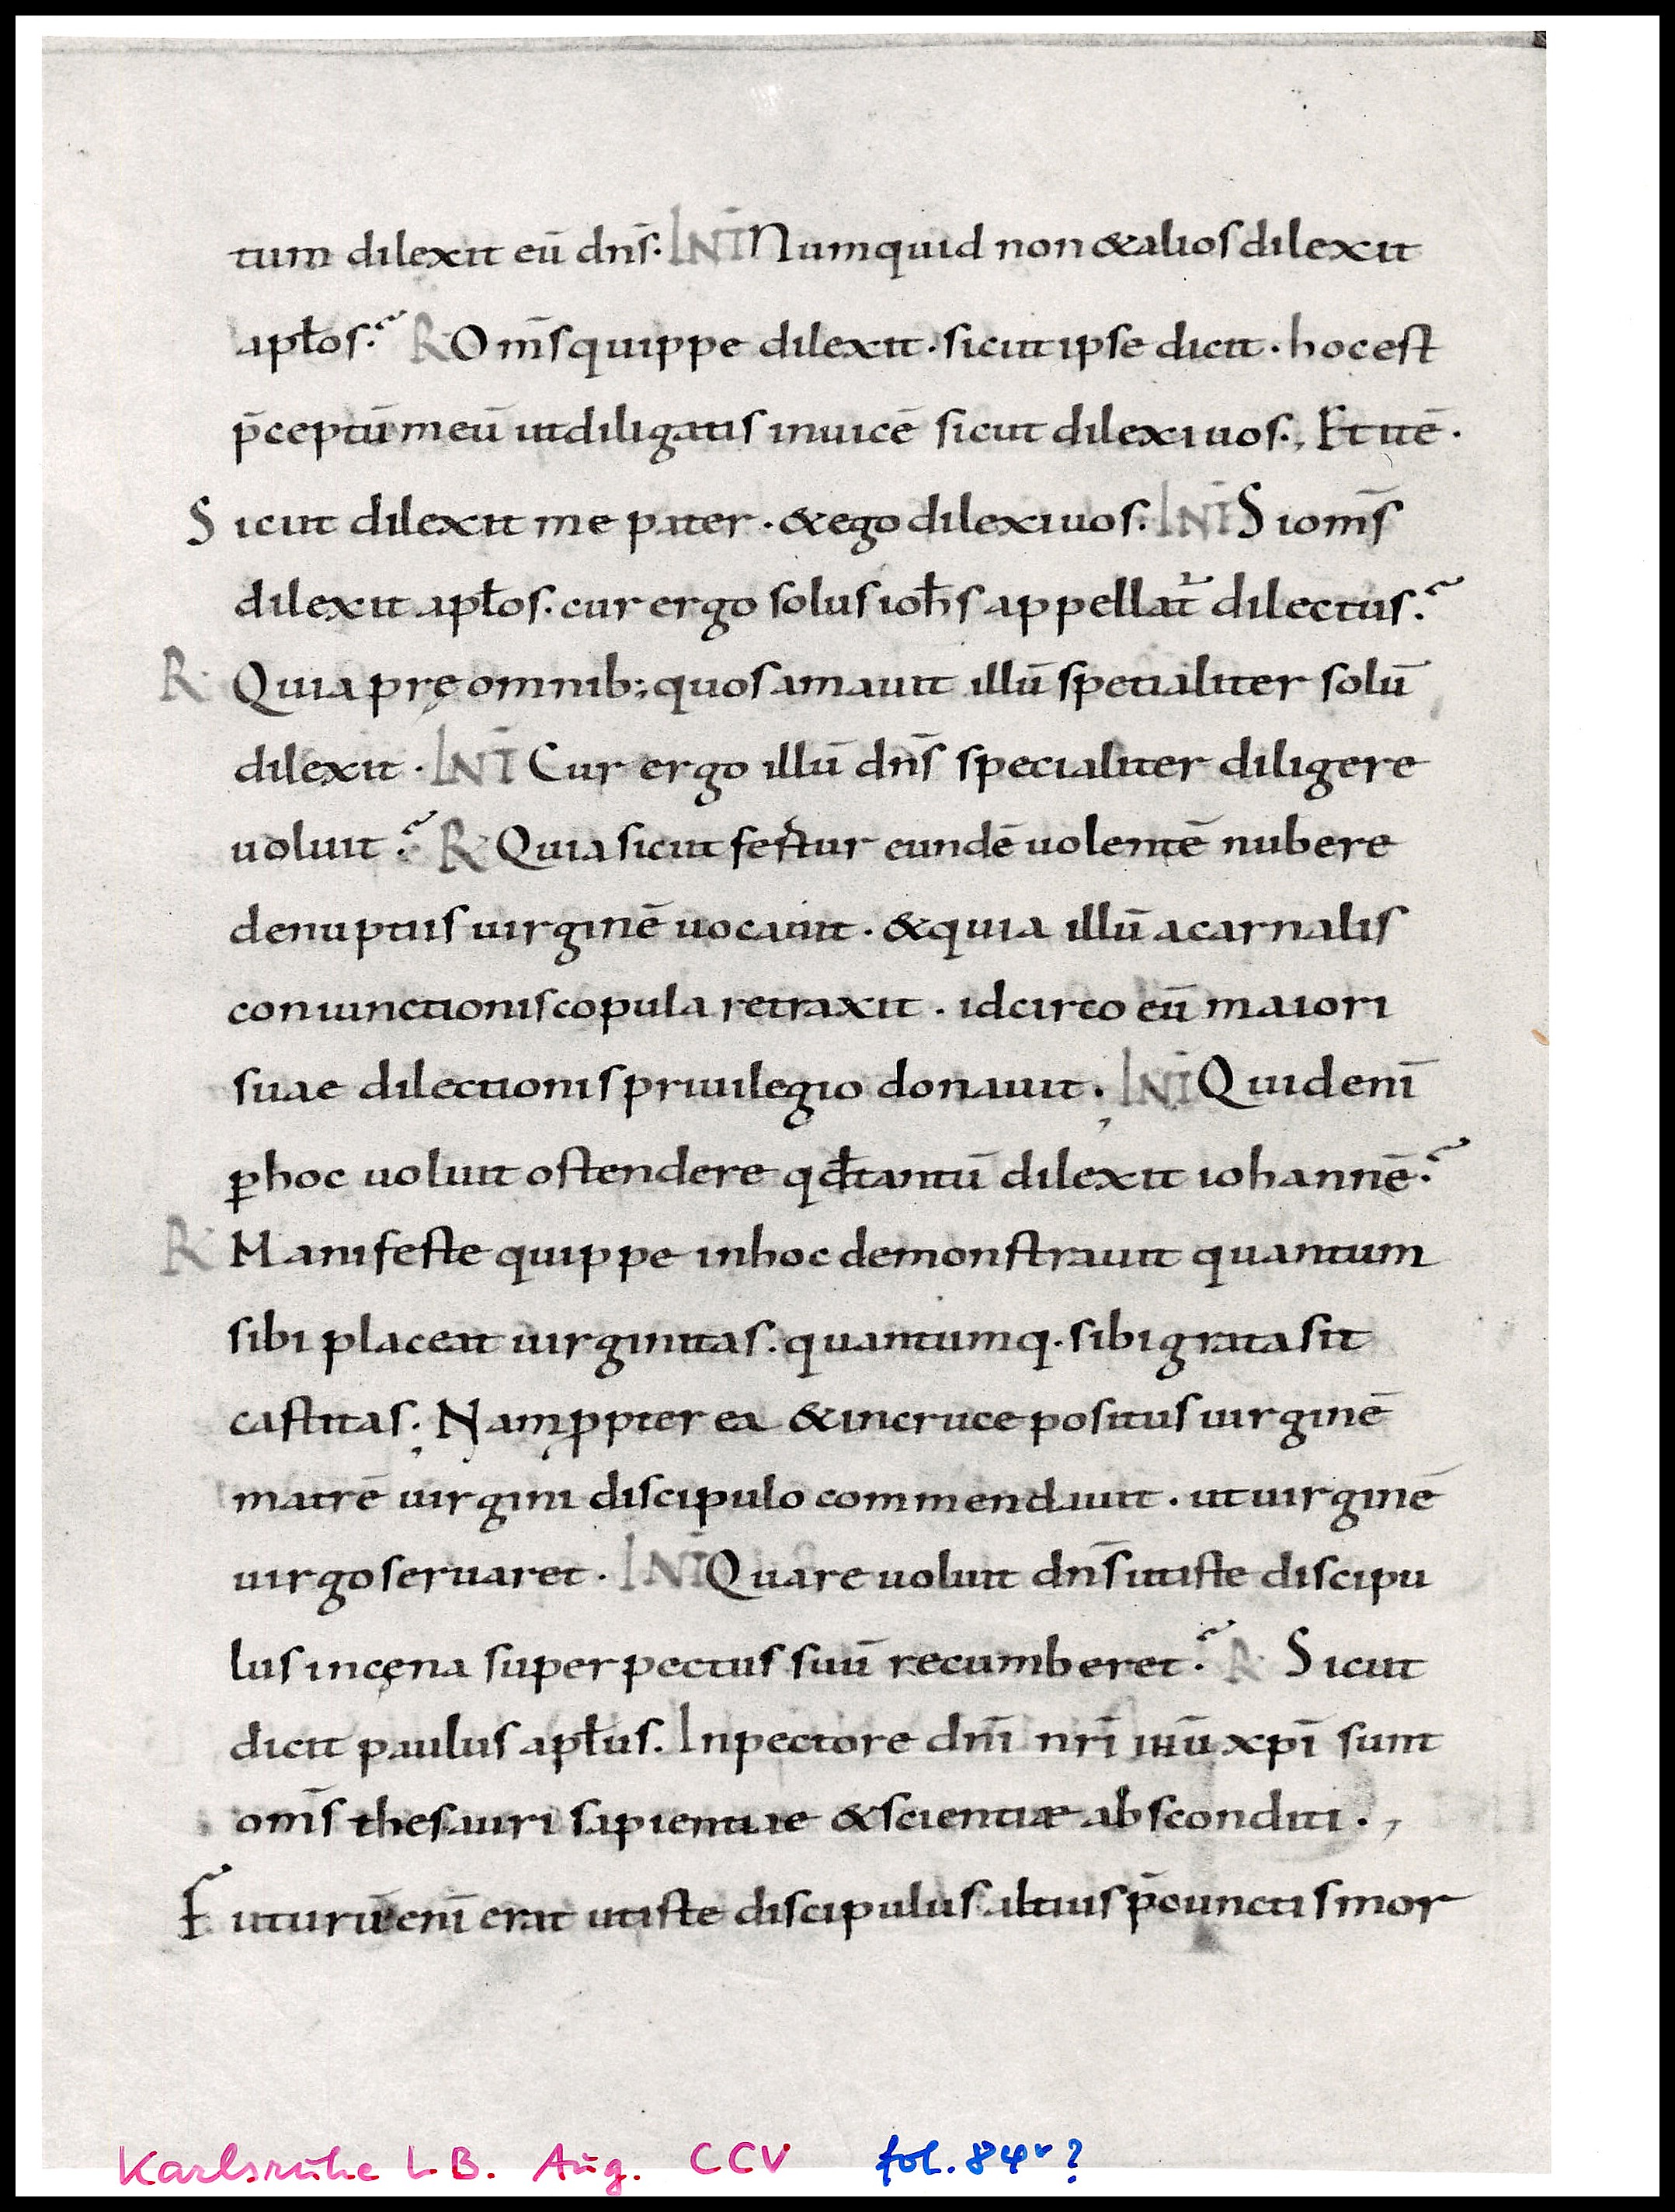 tum dilexit eū dn̄s. INT̄ Numquid non & alios dilexit
apłos? R Om̄s quippe dilexit. sicut ipse dicit. hoc est
p̄ceptū meū ut diligatis inuicē sicut dilexi uos., Et itē.
Sicut dilexit me pater. & ego dilexi uos. INT̄ Si om̄s
dilexit apłos. cur ergo solus ioħs appellat̄ dilectus?
R Quia prę omnib; quos amauit illū spetialiter solū
dilexit. INT̄ Cur ergo illū dn̄s specialiter diligere
uoluit? R Quia sicut fertur eundē uolentē nubere
de nuptiis uirginē uocauit. & quia illū a carnalis
coniunctionis copula retraxit. idcirco eū maiori
suae dilectionis priuilegio donauit. INT̄ Quid enī
ꝑ hoc uoluit ostendere qđ tantū dilexit iohannē?
R Manifeste quippe in hoc demonstrauit quantum
sibi placeat uirginitas. quantumq. sibi grata sit
castitas. Nam ꝓpter ea & in cruce positus uirginē
matrē uirgini discipulo commendauit. ut uirginē
uirgo seruaret. INT̄ Quare uoluit dn̄s ut iste discipu
lus in cęna super pectus suū recumberet? R Sicut
dicit paulus apłus. In pectore dn̄i nr̄i ihū xp̄i sunt
om̄s thesauri sapientiae & scientiæ absconditi.,
Futurū enī erat ut iste discipulus altius p̄ cunctis mor
Karlsruhe L.B. Aug. CCV fol. 84v ?